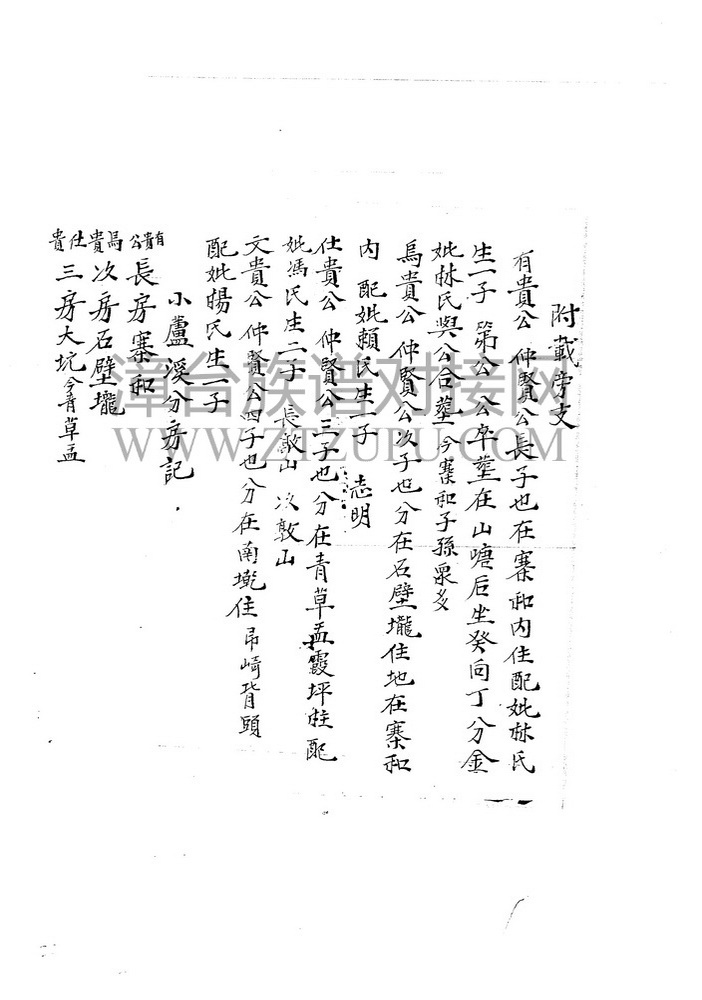 附載旁支
有貴公 仲賢公長子也在寨和内住配妣林氏
生一子 第公 公卒塟在山塘后坐癸向丁分金
妣林氏與公合塟今寨和子孫衆多
馬貴公 仲賢公次子也分在石壁壠住地在寨和
内 配妣賴氏生一子 志明
仕貴公 仲賢公三子也分在青草盂霞坪住配
妣馮氏生二子 長敦山 次敦山
文貴公 仲賢公四子也分在南坑住吊崎背頭
配妣楊氏生一子
小蘆溪分房記
有貴公 長房寨和
馬貴 次房石壁壠
仕貴 三房大坑今青草盂
漳台族谱对接网
WWW.ZTZUPU.COM